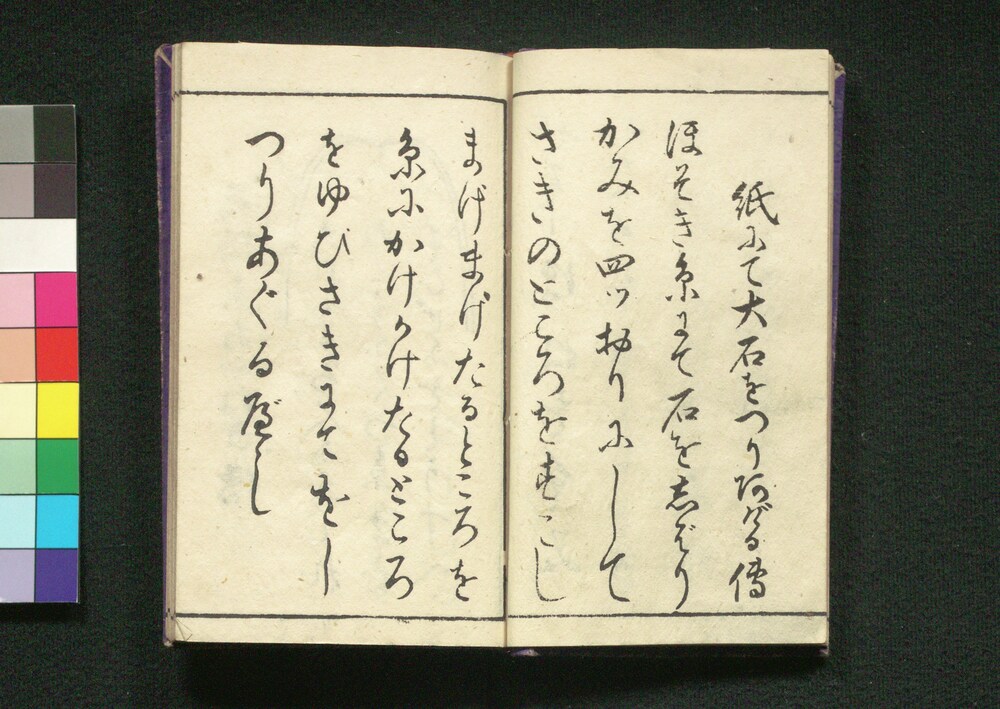 紙にて大石をつりあげる傳
ほそき糸にて石をしばり
かみを四ツ折りにして
さきのところをすこし
まげまげたるところを
糸にかけかけたるところ
をゆびさきにておし
つりあぐるべし